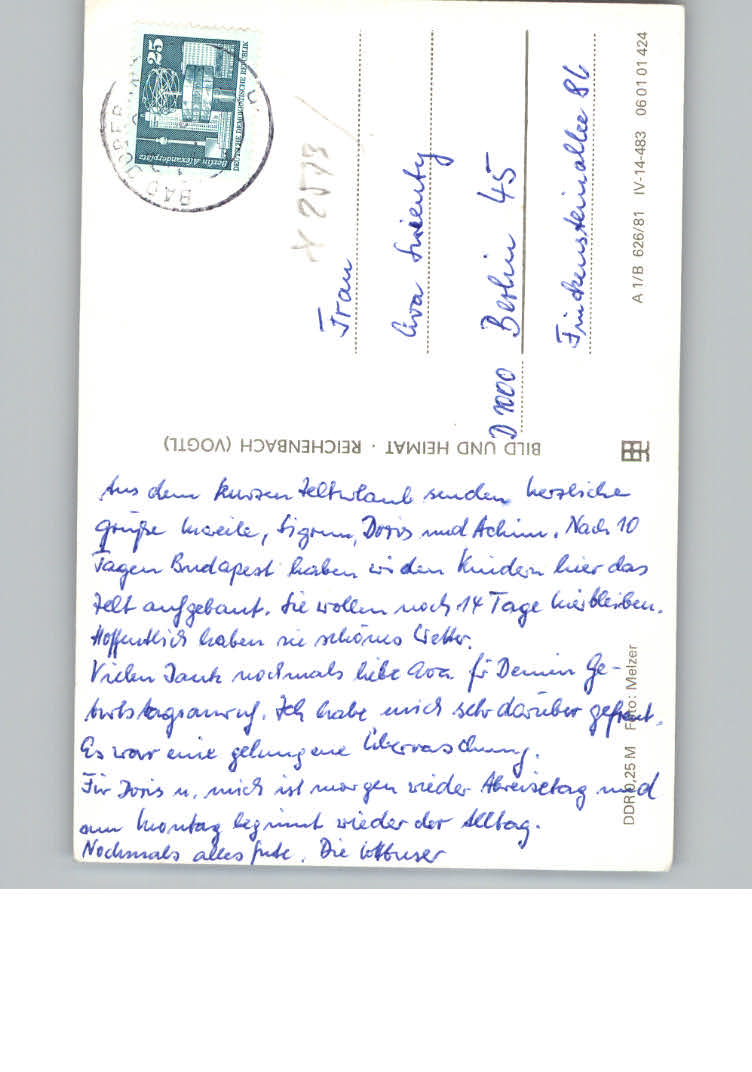 Aus dem kurzen Zelturlaub senden herzliche
Grüße Mareile, Sigrun, Doris und Achim. Nach 10
Tagen Budapest haben wir den Kindern hier das
Zelt aufgebaut. Sie wollen noch 14 Tage hierbleiben.
Hoffentlich haben sie schönes Wetter.
Vielen Dank nochmals liebe Ava für Deinen Ge-
burtstagsanruf. Ich habe mich sehr darüber gefreut.
Es war eine gelungene Überraschung.
Für Doris u. mich ist morgen wieder Abreisetag und
am Montag beginnt wieder der Alltag.
Nochmals alles Gute. Die Cottbuser
Frau
Ava
D 1000 Berlin 45
Finckensteinallee 86
BILD UND HEIMAT · REICHENBACH (VOGTL)
A 1/B 626/81 IV-14-483 06 01 01 424
DDR 0,25 M Foto: Melzer
25
Berlin, Alexanderplatz
DEUTSCHE DEMOKRATISCHE REPUBLIK
BAD DOBERAN